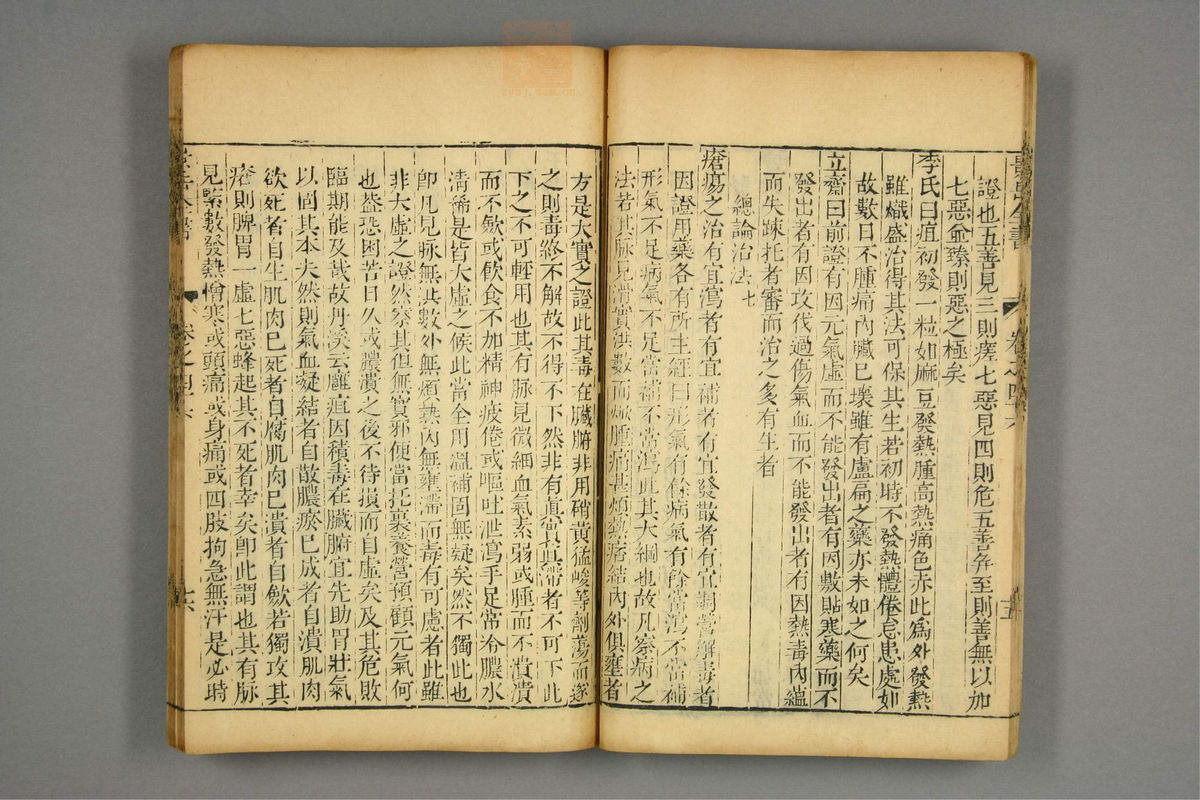 證也五善見三則瘥七惡見四則危五善并至則善無以加
七惡並臻則惡之極矣
李氏曰疽初發一粒如麻豆發熱腫高熱痛色赤此為外發熱
雖熾盛治得其法可保其生若初時不發熱體倦怠患處如
故數日不腫痛內臟已壞雖有盧扁之藥亦未如之何矣
立齋曰前證有因元氣虛而不能發出者有因敷貼寒藥而不
發出者有因攻伐過傷氣血而不能發出者有因熱毒內蘊
而失踈托者審而治之多有生者
總論治法 七
瘡瘍之治有宜瀉者有宜補者有宜發散者有宜調營解毒者
因證用藥各有所主經曰形氣有餘病氣有餘當瀉不當補
形氣不足病氣不足當補不當瀉此其大綱也故凡察病之
法若其脉見滑實洪數而焮腫痛甚煩熱痞結內外俱壅者
方是大實之證此其毒在臟腑非用硝黃猛峻等劑蕩而逐
之則毒終不解故不得不下然非有真實真滯者不可下此
下之不可輕用也其有脉見微細血氣素弱或腫而不潰潰
而不斂或飲食不加精神疲倦或嘔吐泄瀉手足常冷膿水
清稀是皆大虛之候此當全用溫補固無疑矣然不獨此也
即凡見脉無洪數外無煩熱內無壅滯而毒有可慮者此雖
非大虛之證然察其但無實邪便當托裏養營預顧元氣何
也蓋恐困苦日久或膿潰之後不待損而自虛矣及其危敗
臨期能及哉故丹溪云癰疽因積毒在臟腑宜先助胃壯氣
以固其本夫然則氣血凝結者自散膿瘀已成者自潰肌肉
欲死者自生肌肉已死者自腐肌肉已潰者自斂若獨攻其
瘡則脾胃一虛七惡蜂起其不死者幸矣即此謂也其有脉
見緊數發熱憎寒或頭痛或身痛或四肢拘急無汗是必時